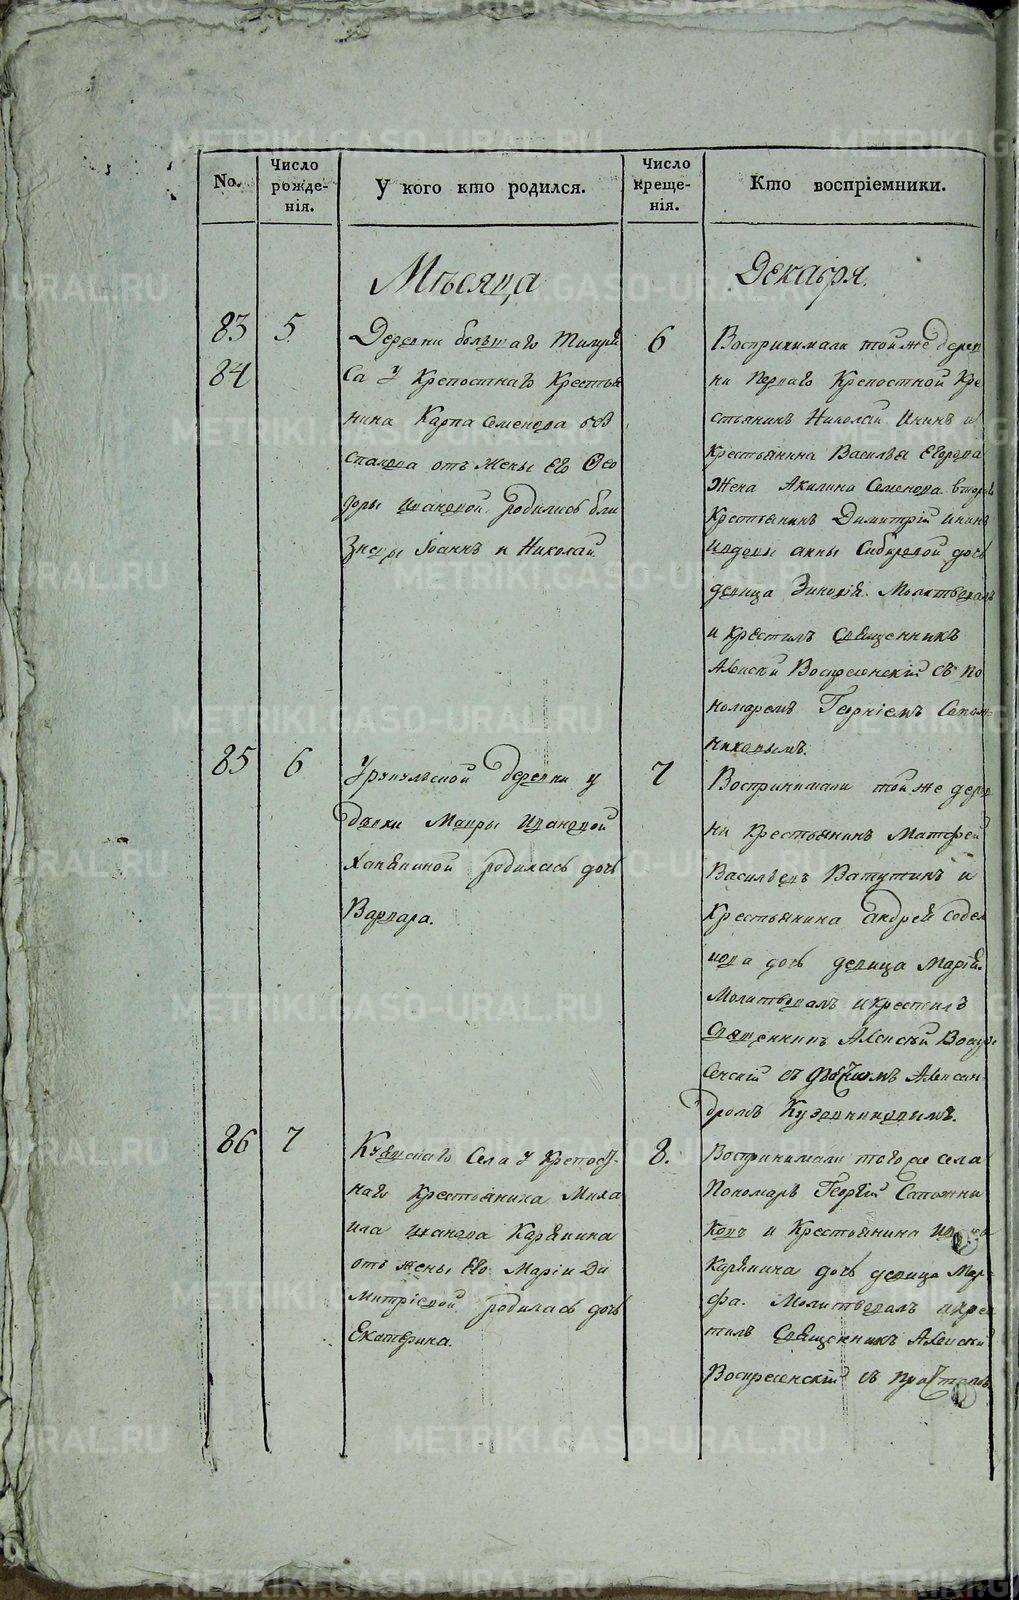 No.
Число рожде- нія.
У кого кто родился.
Число креще- нія.
Кто воспріемники.
Мѣсяца
Декабря.
83 5
84
Деревни большаго
са у крепостнаго крестья
нина Карпа Семенова
отъ жены его Фео
доры Ивановой родились бли
знецы Іоаннъ и Николай
6
Воспринимали тойже дерев
ни перваго крепостной кре
стьянинъ Николай и
крестьянина Василья Егорова
жена Акилина Семенова втораго
крестьянинъ Димитрій
и вдовы анны Сибировой дочь
девица Зиновія. Молитвовалъ
и крестилъ священникъ
Алексѣй Воскресенскій съ по
номаремъ Георгіемъ Сапож-
никовымъ.
85 6
деревни у
дѣвки Мавры Ивановой
родилась дочь
Варвара.
7
Воспринимали тойже дерев
ни крестьянинъ Матфей
Васильевъ Ватутинъ и
крестьянина андрей
дочь девица Марія.
Молитвовалъ и крестилъ
священникъ Алексѣй Воскре
сенскій съ Алексан-
дромъ
86 7
села у крепост-
наго крестьянина Миха
ила Иванова Карѣлина
отъ жены его Маріи Ди
митріевой родилась дочь
Екатерина.
8.
Воспринимали того же села
пономарь Георгій Сапожни
ковъ и крестьянина
Карѣлина дочь девица Мар-
фа. Молитвовалъ и крес
тилъ священникъ Алексѣй
Воскресенскій съ
METRIKI.GASO-URAL.RU